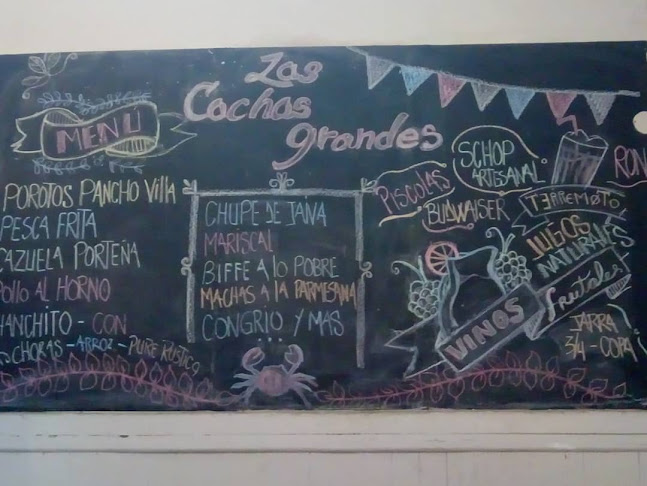 Las
Cachas
grandes
MENU
POROTOS PANCHO VILLA
PESCA FRITA
CAZUELA PORTEÑA
POLLO AL HORNO
CHANCHITO - CON
CHORAS - ARROZ - PURE RUSTICO
CHUPE DE JAIVA
MARISCAL
BIFFE A LO POBRE
MACHAS A LA PARMESANA
CONGRIO Y MAS
...
PISCOLAS
SCHOP
ARTESANAL
RON
BUDWAISER
TERREMOTO
JUGOS
NATURALES
frutales
VINOS
JARRA
3/4 - COPA